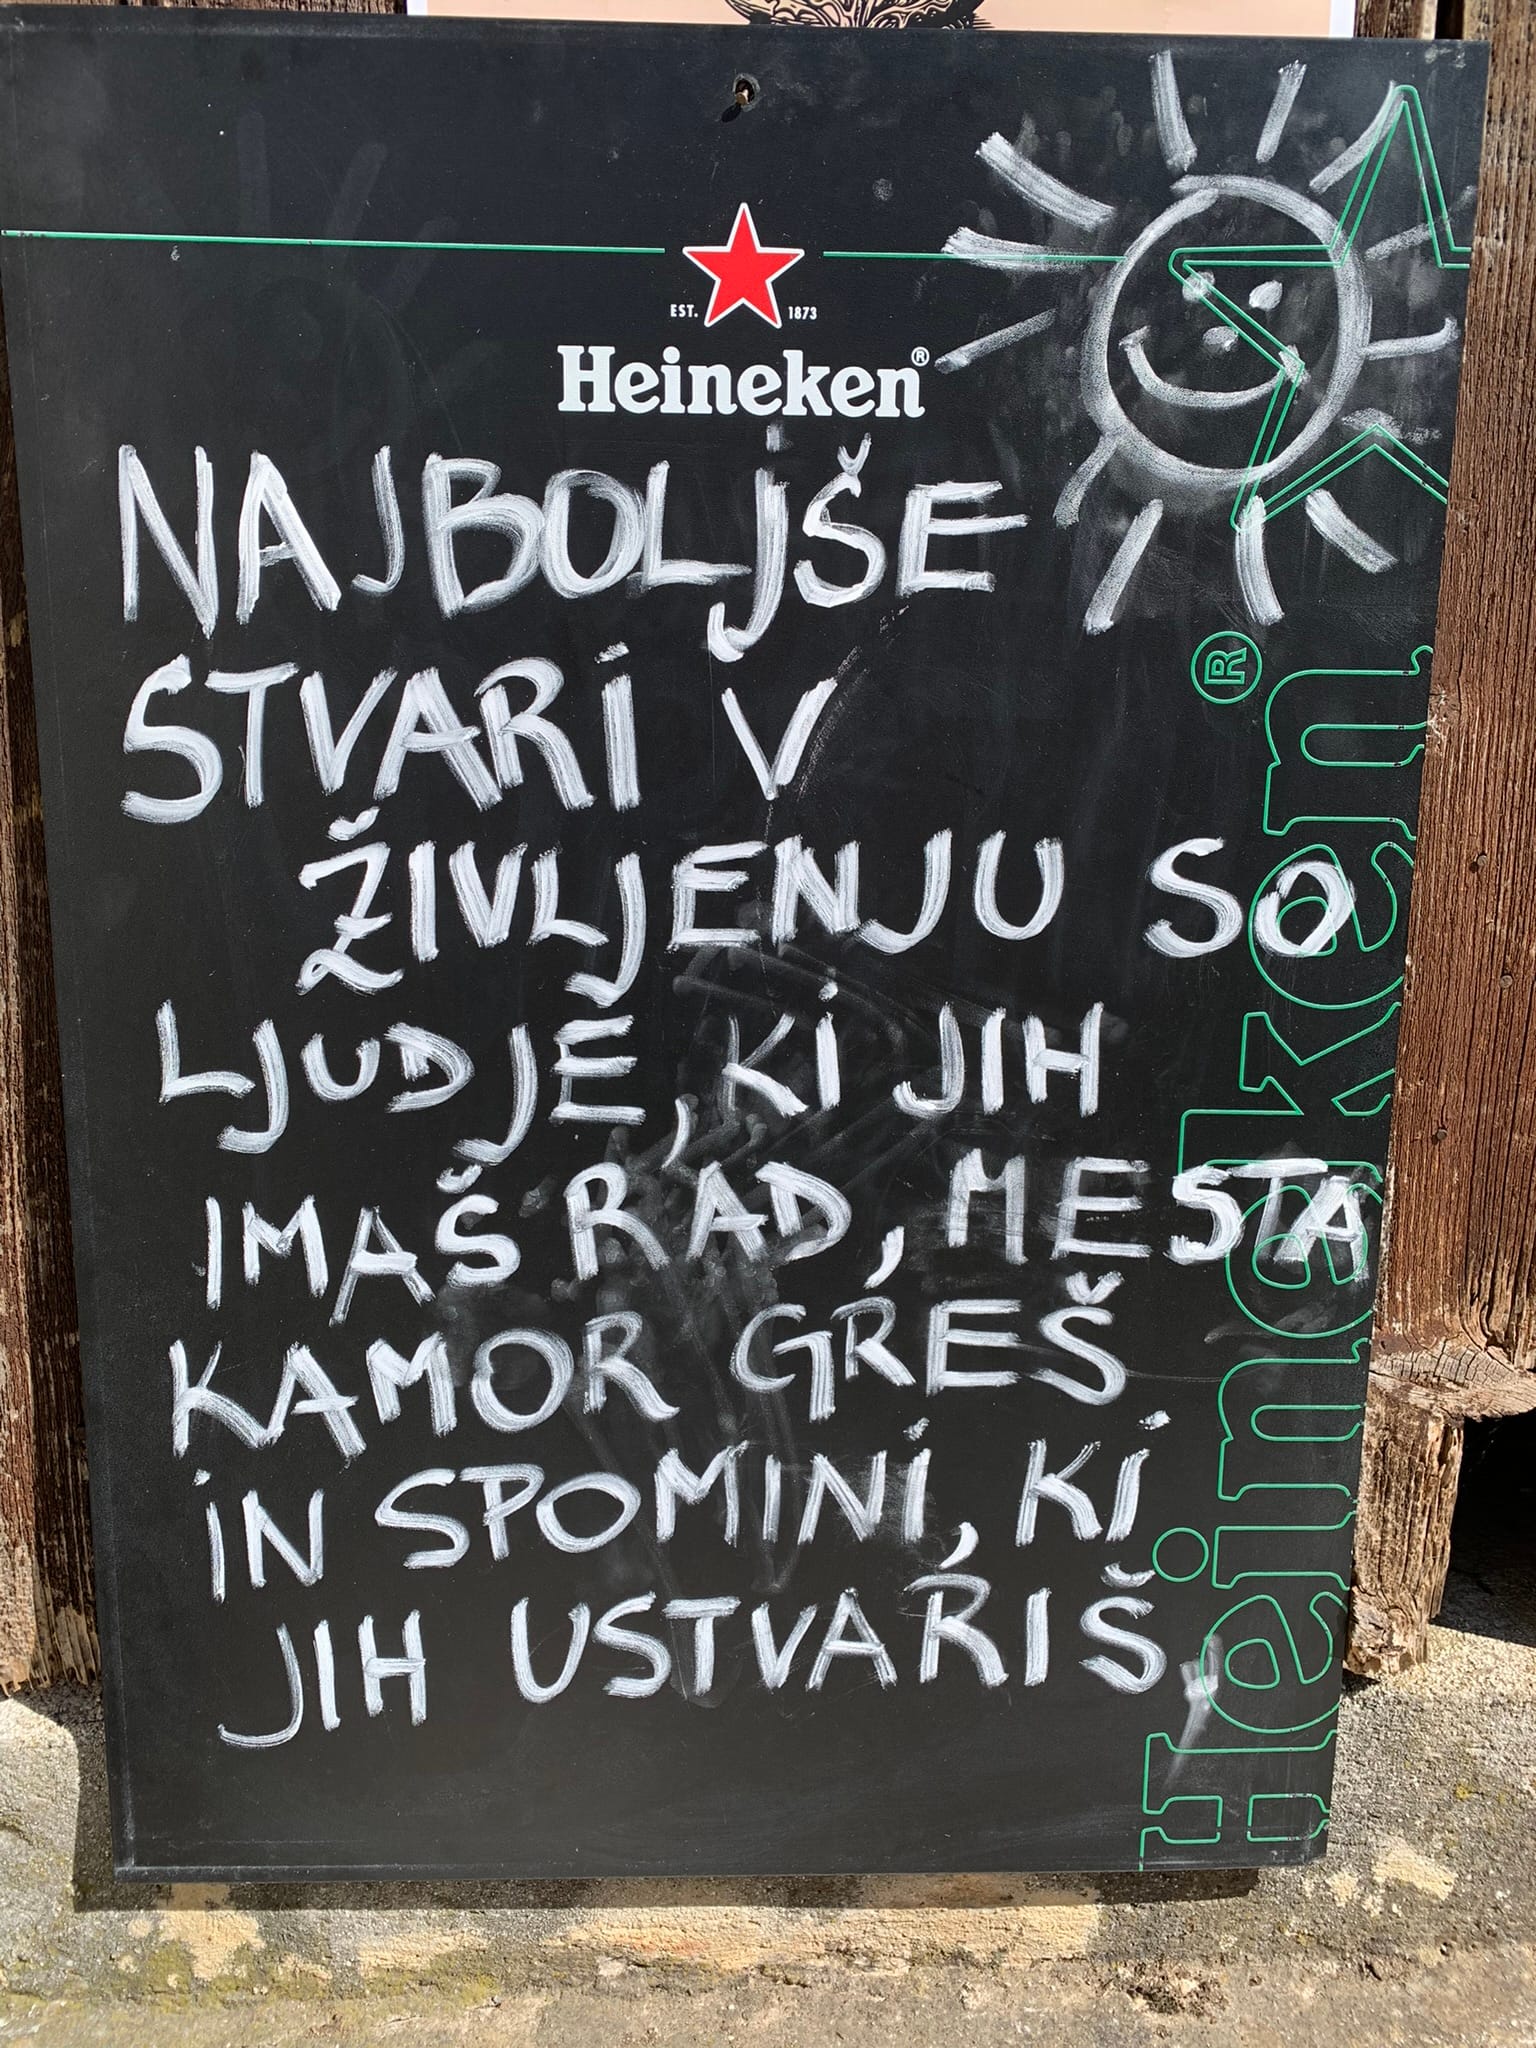 EST. 1873
Heineken®
NAJBOLJŠE
STVARI V
ŽIVLJENJU SO
LJUDJE, KI JIH
IMAŠ RAD, MESTA
KAMOR GREŠ
IN SPOMINI, KI
JIH USTVARIŠ,
Heineken®